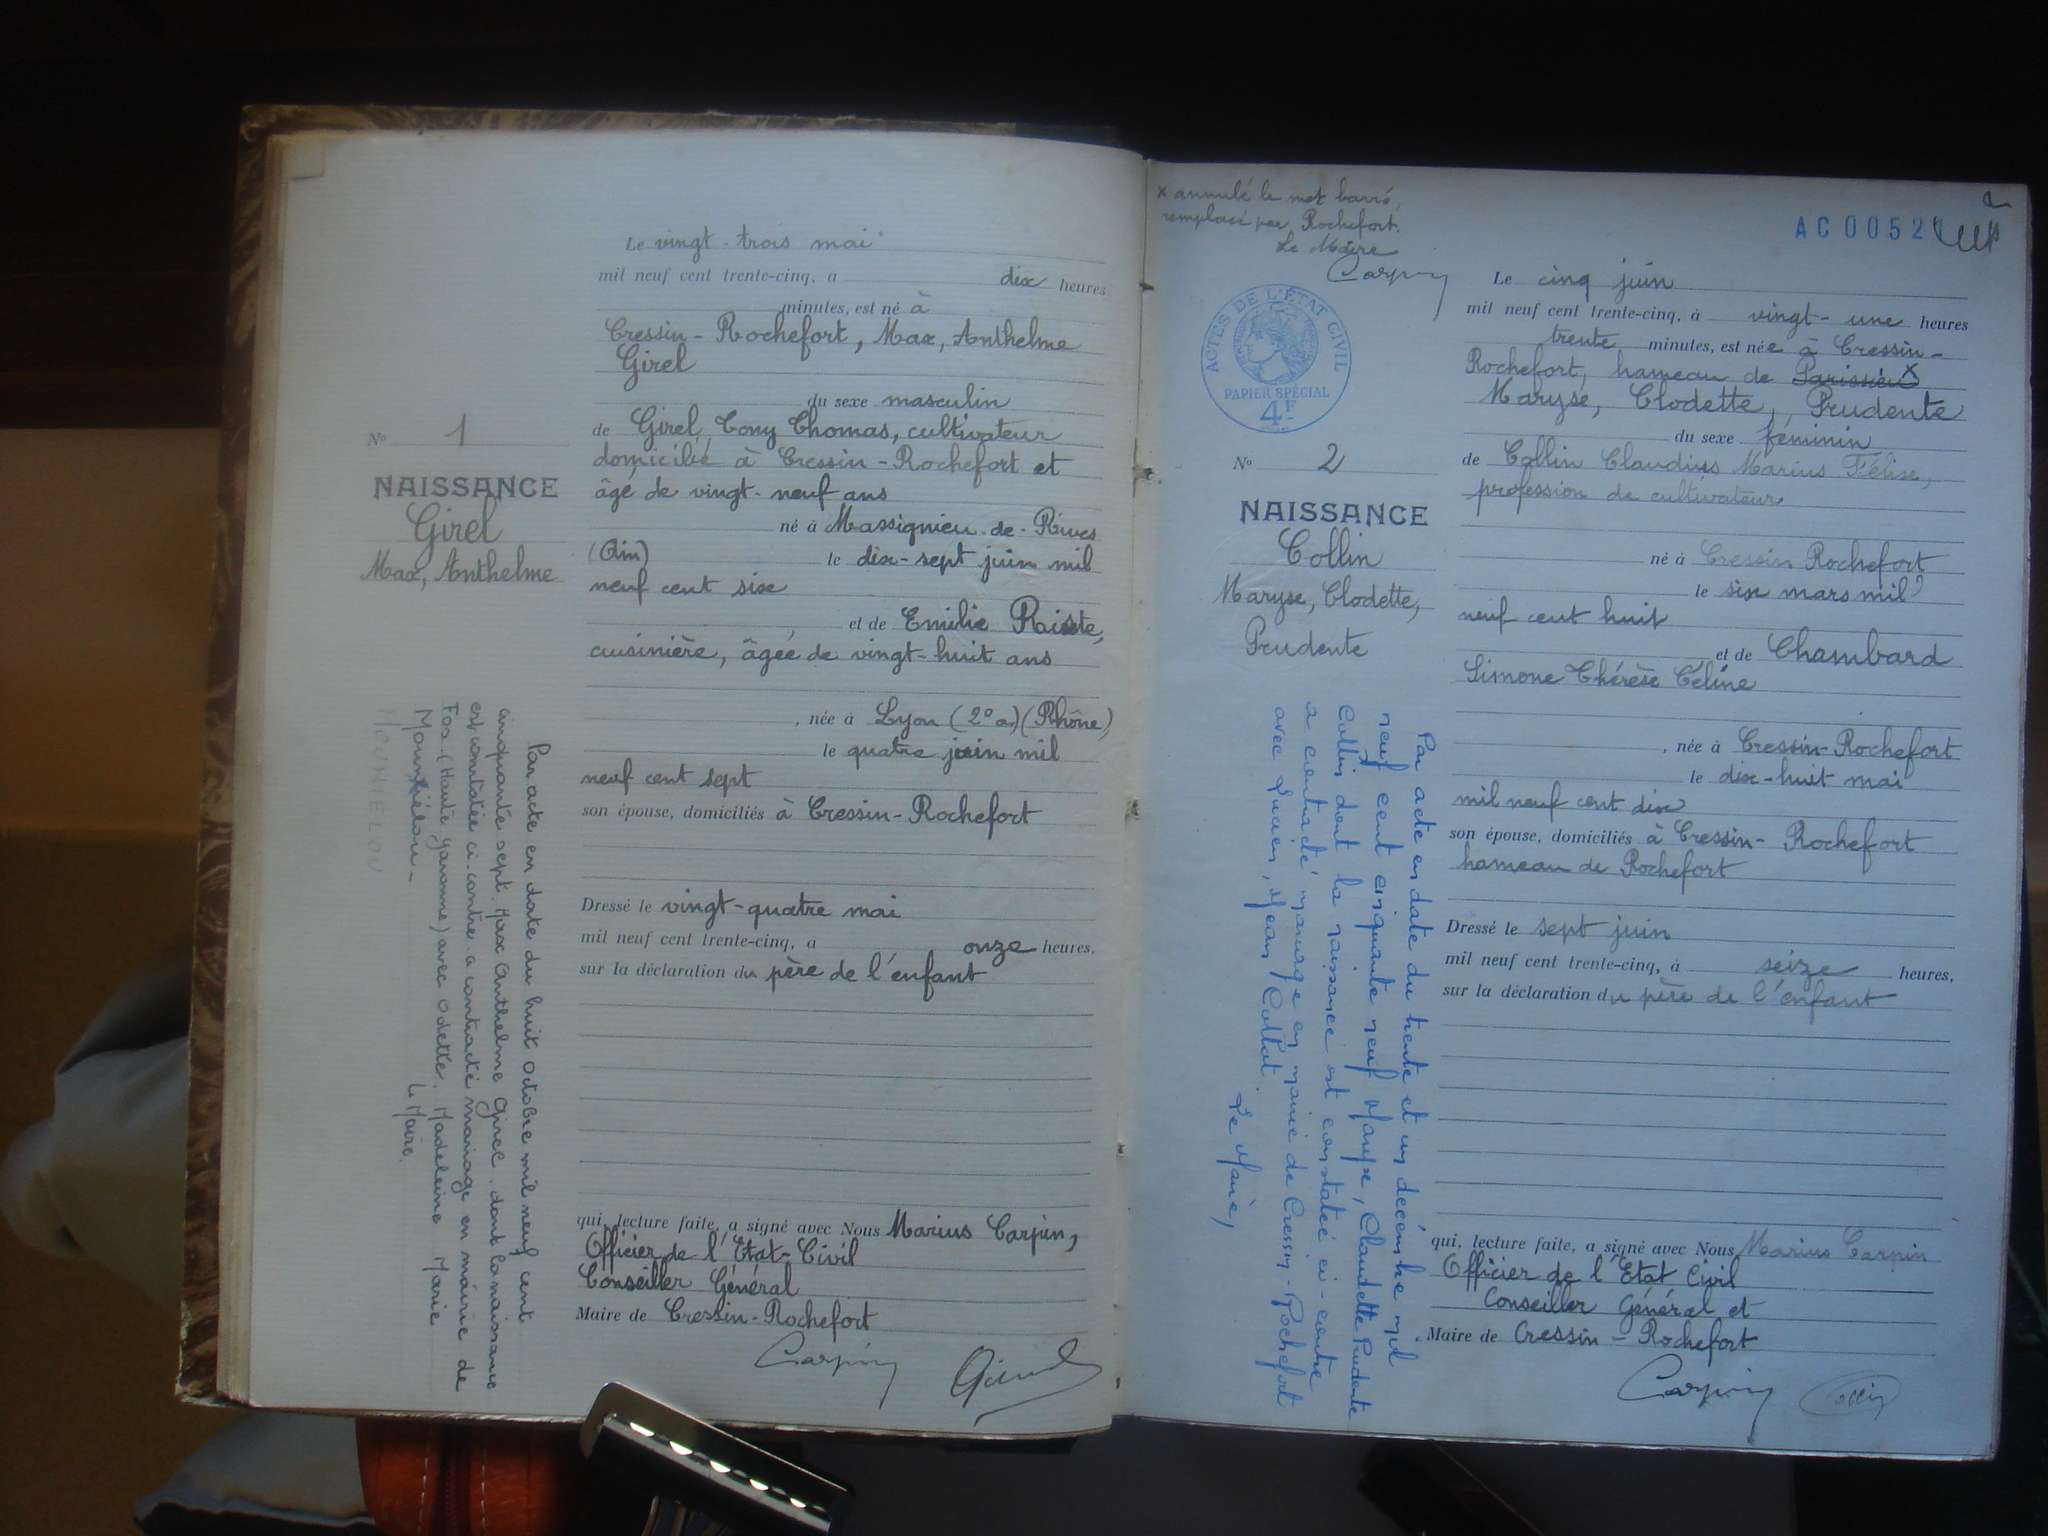 Le vingt-trois mai
mil neuf cent trente-cinq, a dix heures
minutes, est né à
Cressin-Rochefort, Max, Anthelme
Girel
du sexe masculin
de Girel, Tony Thomas, cultivateur
domicilié à Cressin-Rochefort et
âgé de vingt-neuf ans
né à Massignieu-de-Rives
(Ain) le dix-sept juin mil
neuf cent six
et de Emilie
cuisinière, âgée de vingt-huit ans
, née à Lyon (2e ar) (Rhône)
le quatre juin mil
neuf cent sept
son épouse, domiciliés à Cressin-Rochefort
Dressé le vingt-quatre mai
mil neuf cent trente-cinq, a onze heures.
sur la déclaration du père de l'enfant
qui, lecture faite, a signé avec Nous Marius Carpin,
Officier de l'Etat-Civil
Conseiller Général
Maire de Cressin-Rochefort
Carpin
Girel
No 1
NAISSANCE
Girel
Max, Anthelme
Par acte en date du huit octobre mil neuf cent
cinquante sept. Max Anthelme Girel. dont la naissance
est constatée ci-contre a contracté mariage en mairie de
Fos (Haute garonne) avec Odette. Madeleine Marie
Le Maire.
MOUNIELOU
x annulé le mot barré,
remplacé par Rochefort.
Le Maire
Carpin
2
AC 0052
ACTES DE L'ÉTAT CIVIL
PAPIER SPÉCIAL
4F
No 2
NAISSANCE
Collin
Maryse, Clodette,
Prudente
Par acte en date du trente et un décembre mil
neuf cent cinquante neuf Maryse, Claudette Prudente
Collin dont la naissance est constatée ci-contre
a contracté mariage en mairie de Cressin-Rochefort
avec Lucien, Jean Collat.
Le Maire,
Le cinq juin
mil neuf cent trente-cinq, à vingt-une heures
trente minutes, est née à Cressin-
Rochefort, hameau de Parissieu x
Maryse, Clodette, Prudente
du sexe féminin
de Collin Claudius Marius Félise,
profession de cultivateur
né à Cressin Rochefort
le six mars mil
neuf cent huit
et de Chambard
Simone Thérèse Céline
, née à Cressin-Rochefort
le dix-huit mai
mil neuf cent dix
son épouse, domiciliés à Cressin-Rochefort
hameau de Rochefort
Dressé le sept juin
mil neuf cent trente-cinq, à seize heures,
sur la déclaration du père de l'enfant
qui, lecture faite, a signé avec Nous Marius Carpin
Officier de l'Etat Civil
Conseiller Général et
Maire de Cressin-Rochefort
Carpin
Collin